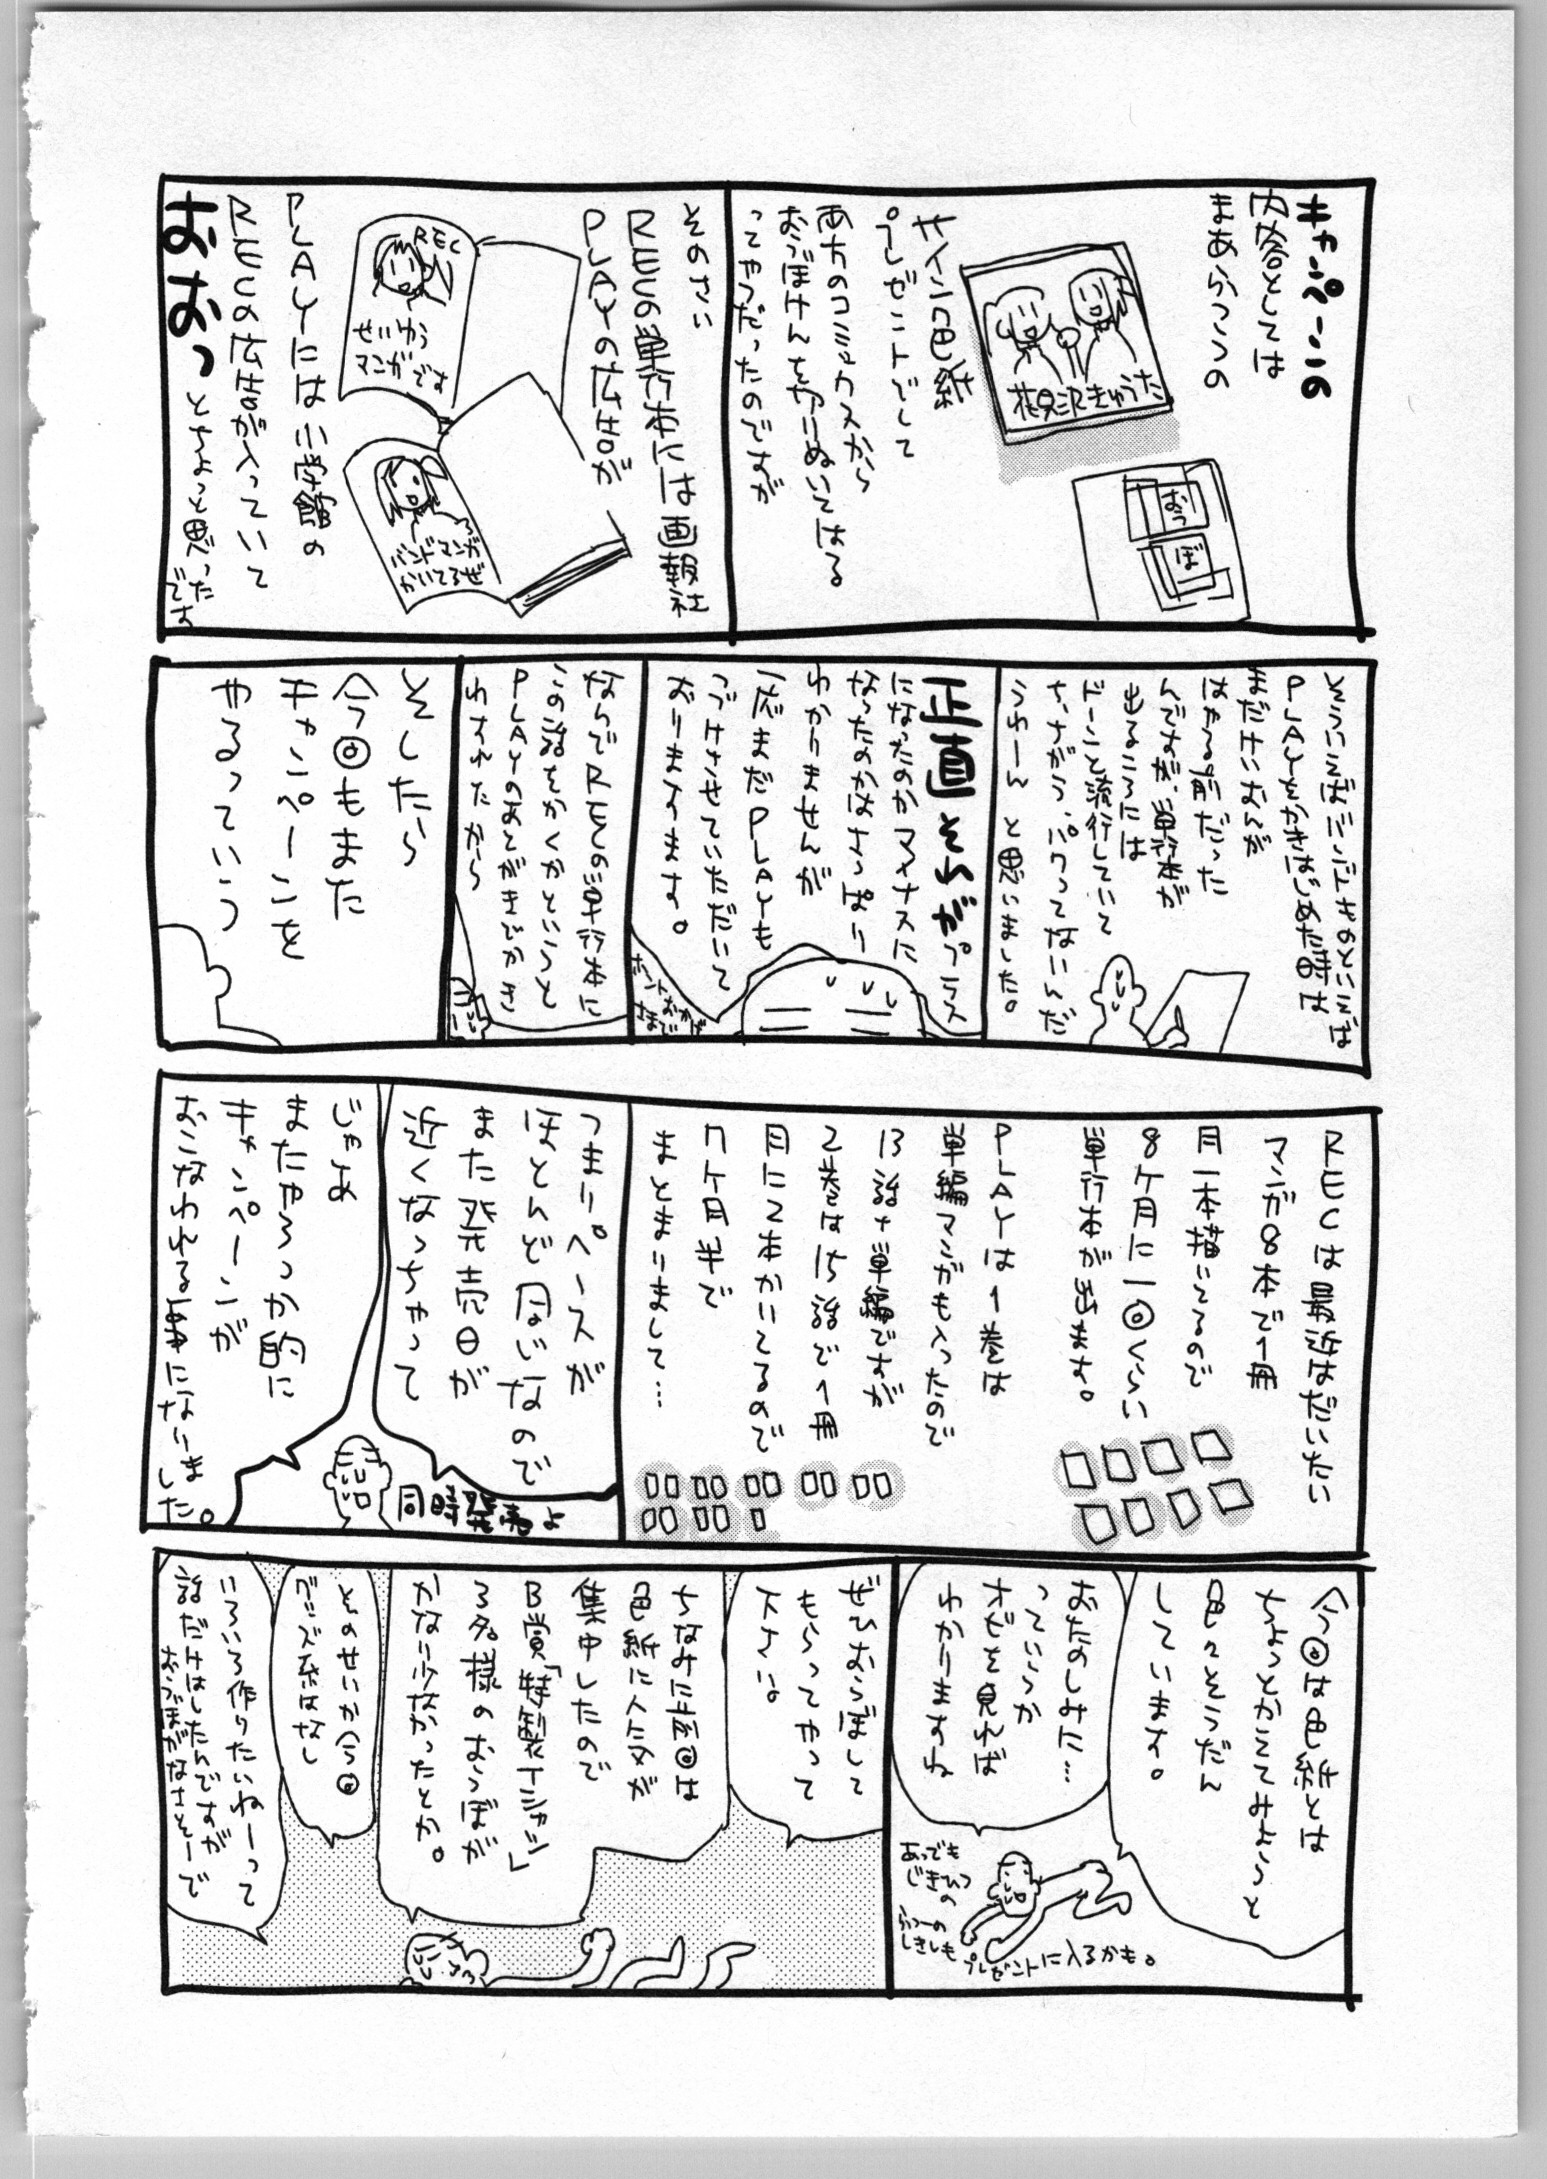 キャンペーンの
内容としては
まあふつうの
花見沢きゅうた
おう
ぼ
サイン色紙
プレゼントでして
両方のコミックスから
おうぼけんを切りぬいてはる
ってやつだったのですが
そのさい
RECの単行本には画報社
PLAYの広告が
REC
マンガです
バンドマンガ
かいてるぜ
PLAYには小学館の
RECの広告が入っていて
おおっ
とちょっと思った
です
PLAYをかきはじめた時は
まだけいおんが
はやる前だった
んですが、単行本が
出るころには
ドーンと流行していて
ちーちがう、パクってないんだ
うわーん と思いました。
正直そらがプラス
になったのかマイナスに
なったのかはさっぱり
わかりませんが
一応まだPLAYも
つづけさせていただいて
おりますります。
なんでRECの単行本に
この話をかくかというと
PLAYのほんがきでかき
わすれたから
そしたら
今回もまた
キャンペーンを
やるっていう
RECは最近はだいたい
マンガ8本で1冊
月一本描いてるので
8ヶ月に一回くらい
単行本が出ます。
PLAYは1巻は
単編マンガも入ったので
13話+単編ですが
2巻は15話で1冊
月に2本かいてるので
7ヶ月半で
まとまりまして…
つまりペースが
ほとんど同じなので
また発売日が
近くなっちゃって
同時発売よ
じゃあ
またやろっか的に
キャンペーンが
おこなわれる事になりま
した。
今回は色紙とは
ちょっとかえてみようと
色々そうだん
しています。
おたのしみに…
っていうか
オビを見れば
わかりますね
あっでも
じきひつ
の
ふつーの
しきしも
プレゼントに入るかも。
ぜひおうぼして
もらってやって
下さい。
ちなみに前回は
色紙に人気が
集中したので
B賞「特製Tシャツ」
3名様のおうぼが
かなり少なかったとか。
そのせいか今回
グッズ系はなし
いろいろ作りたいねーって
話だけはしたんですが
おうぼがなさそーで